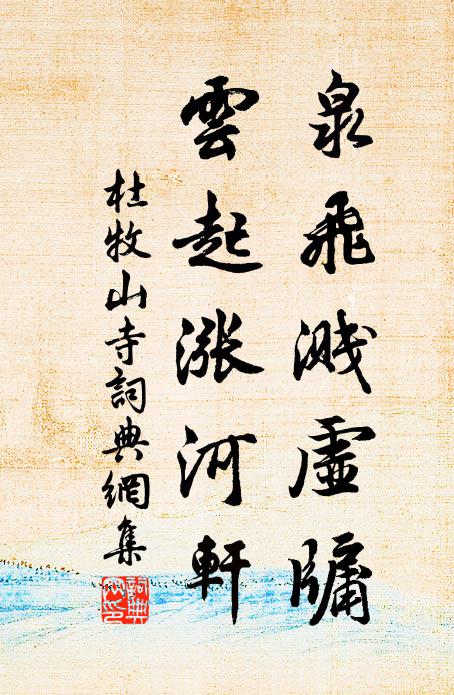 泉飛濺虛牖
雲起漲河軒
杜牧山寺詞典網集